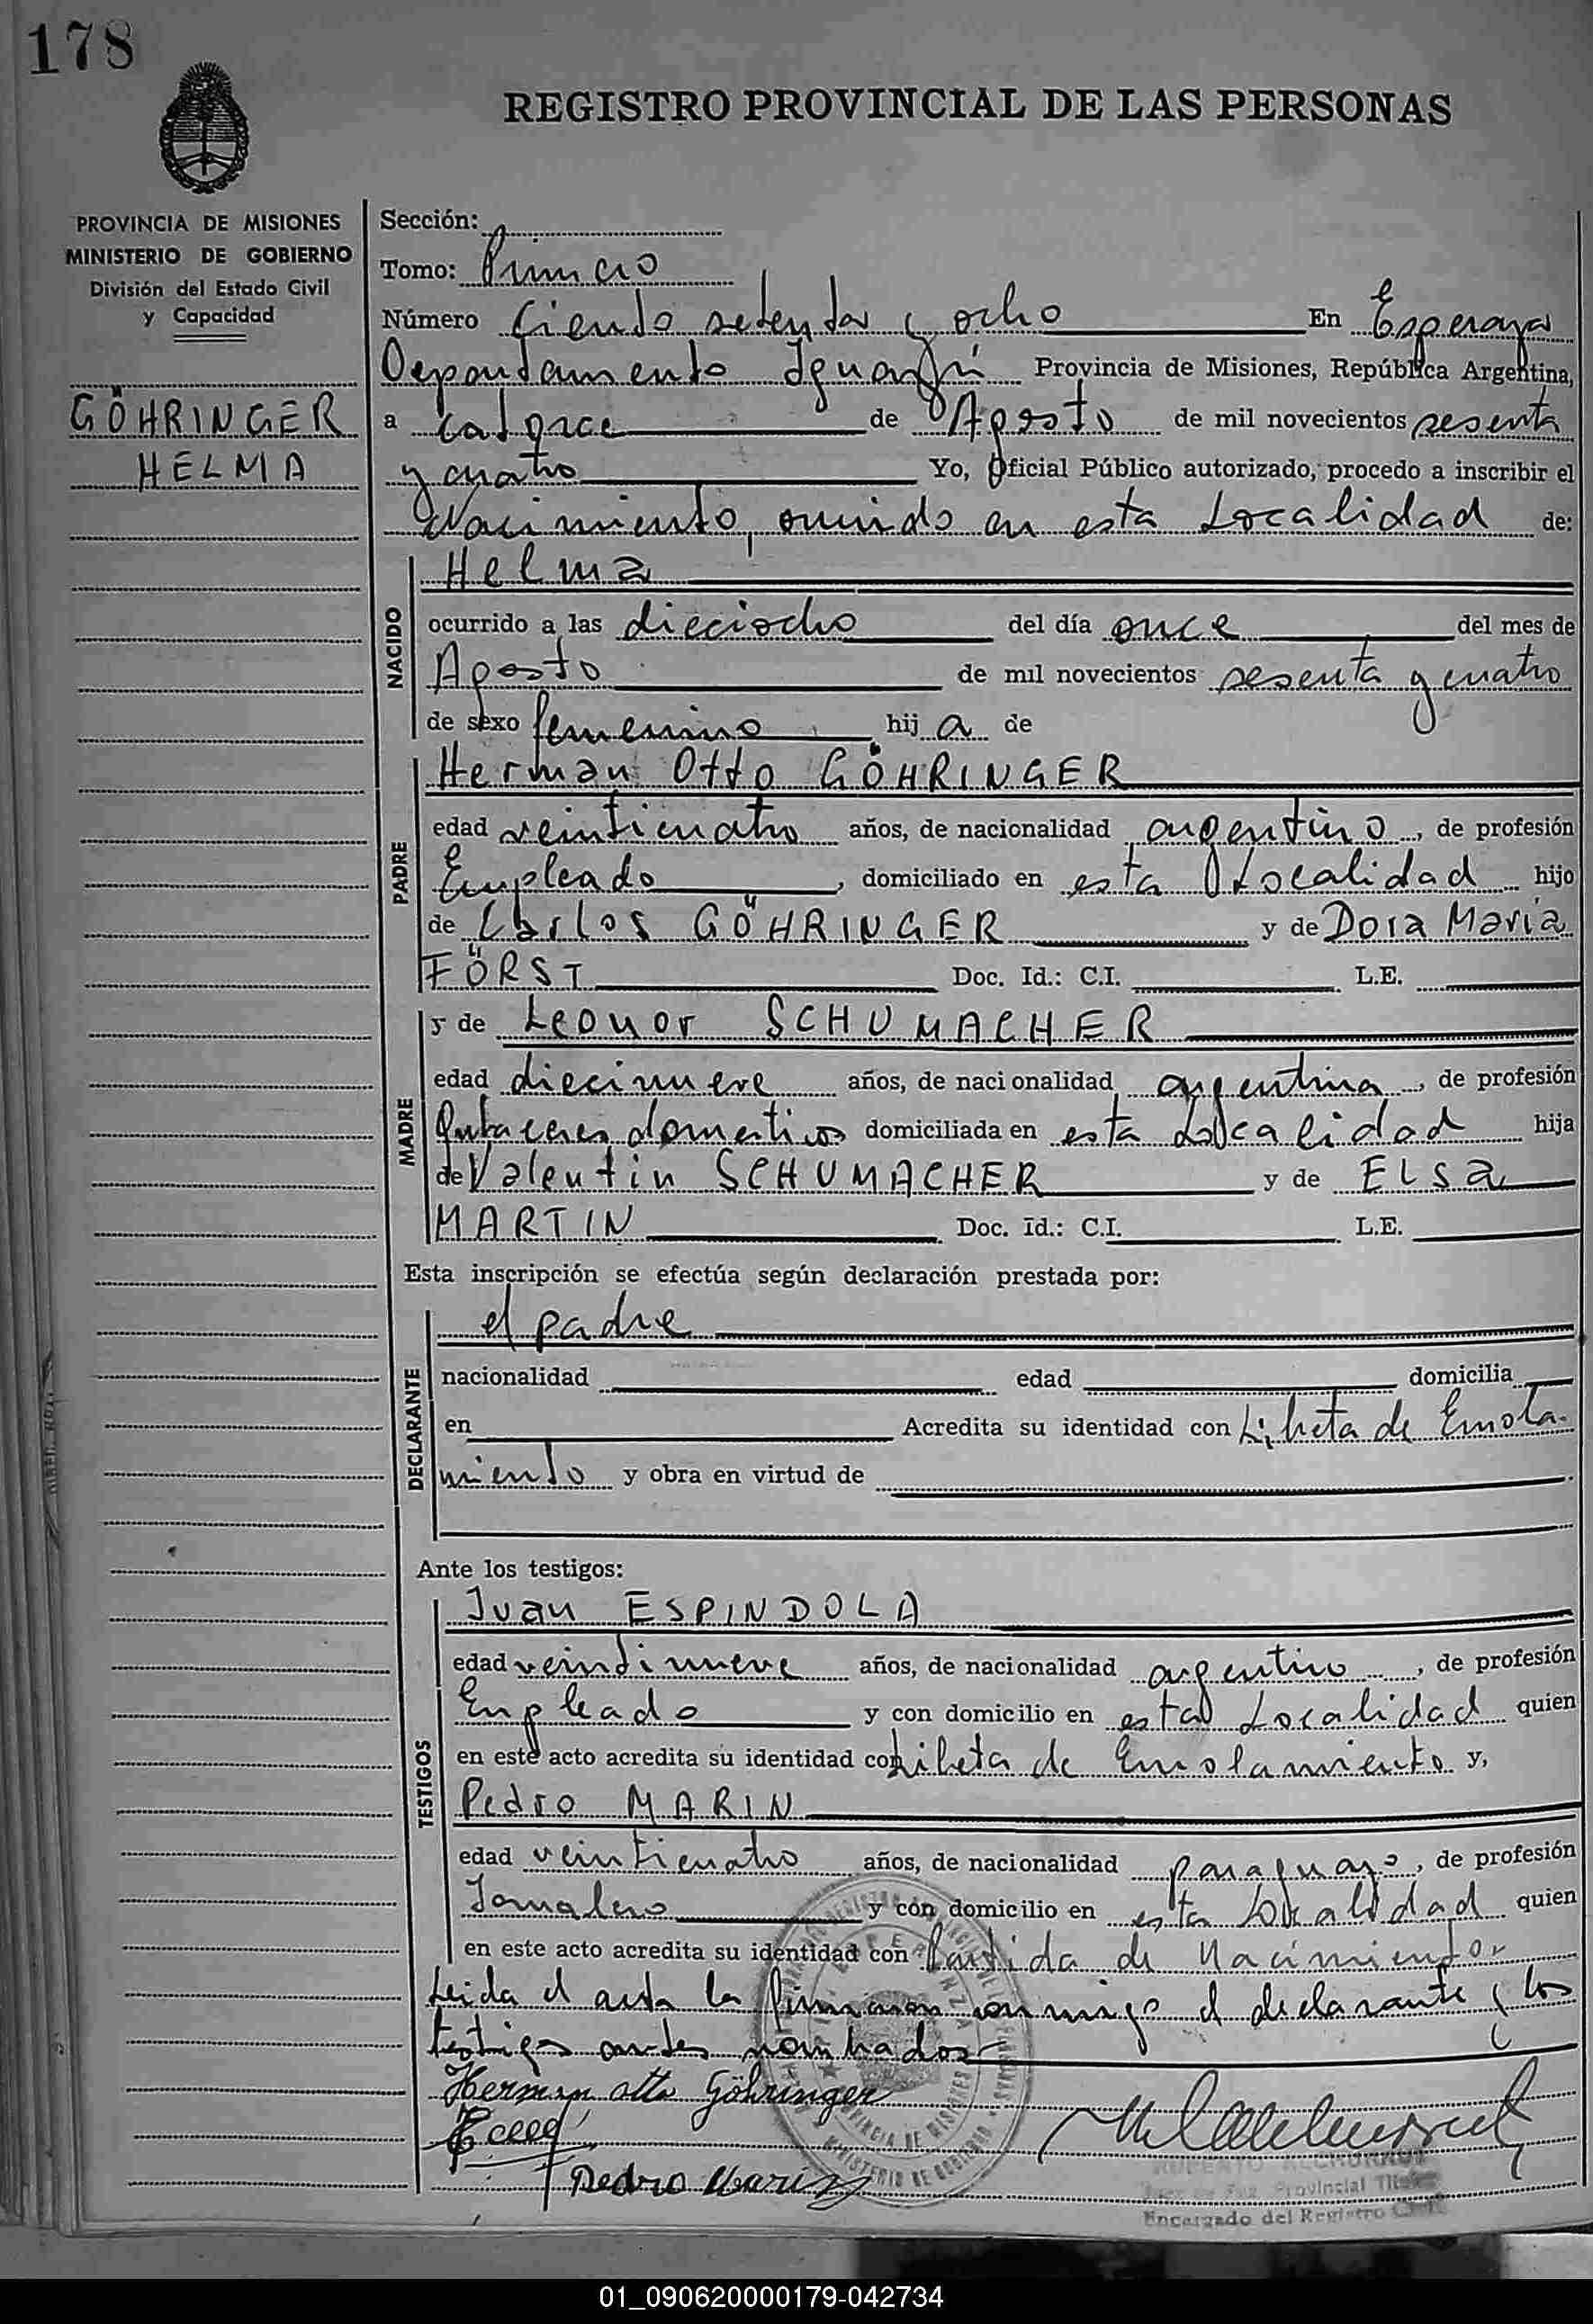 178
REGISTRO PROVINCIAL DE LAS PERSONAS
PROVINCIA DE MISIONES
MINISTERIO DE GOBIERNO
División del Estado Civil
y Capacidad
GÖHRINGER
HELMA
Sección:
Tomo: Primero
Número Ciento setenta y ocho En Esperanza
Departamento Iguazú Provincia de Misiones, República Argentina,
a catorce de Agosto de mil novecientos sesenta
y cuatro Yo, Oficial Público autorizado, procedo a inscribir el
Nacimiento, ocurrido en esta Localidad de:
NACIDO
Helma
ocurrido a las dieciocho del día once del mes de
Agosto de mil novecientos sesenta y cuatro
de sexo femenino hij a de
PADRE
Herman Otto GÖHRINGER
edad veinticuatro años, de nacionalidad argentino, de profesión
Empleado, domiciliado en esta Localidad hijo
de Carlos GÖHRINGER y de Dora Maria
FÖRST Doc. Id.: C.I. L.E.
MADRE
y de Leonor SCHUMACHER
edad diecinueve años, de nacionalidad argentina, de profesión
Quehaceres domesticos domiciliada en esta Localidad hija
de Valentin SCHUMACHER y de ELSA
MARTIN Doc. Id.: C.I. L.E.
Esta inscripción se efectúa según declaración prestada por:
DECLARANTE
el padre
nacionalidad edad domicilia
en Acredita su identidad con Libreta de Enrola
miento y obra en virtud de
Ante los testigos:
TESTIGOS
Juan ESPINDOLA
edad veintinueve años, de nacionalidad argentino, de profesión
Empleado y con domicilio en esta Localidad quien
en este acto acredita su identidad con Libreta de Enrolamiento y,
Pedro MARIN
edad veinticuatro años, de nacionalidad paraguayo, de profesión
Jornalero y con domicilio en esta Localidad quien
en este acto acredita su identidad con Partida de Nacimiento
Leida el acta la firman conmigo el declarante y los
testigos antes nombrados
Herman otto Göhringer
Pedro Marin
Provincial Titular
Encargado del Registro Civil
01_090620000179-042734